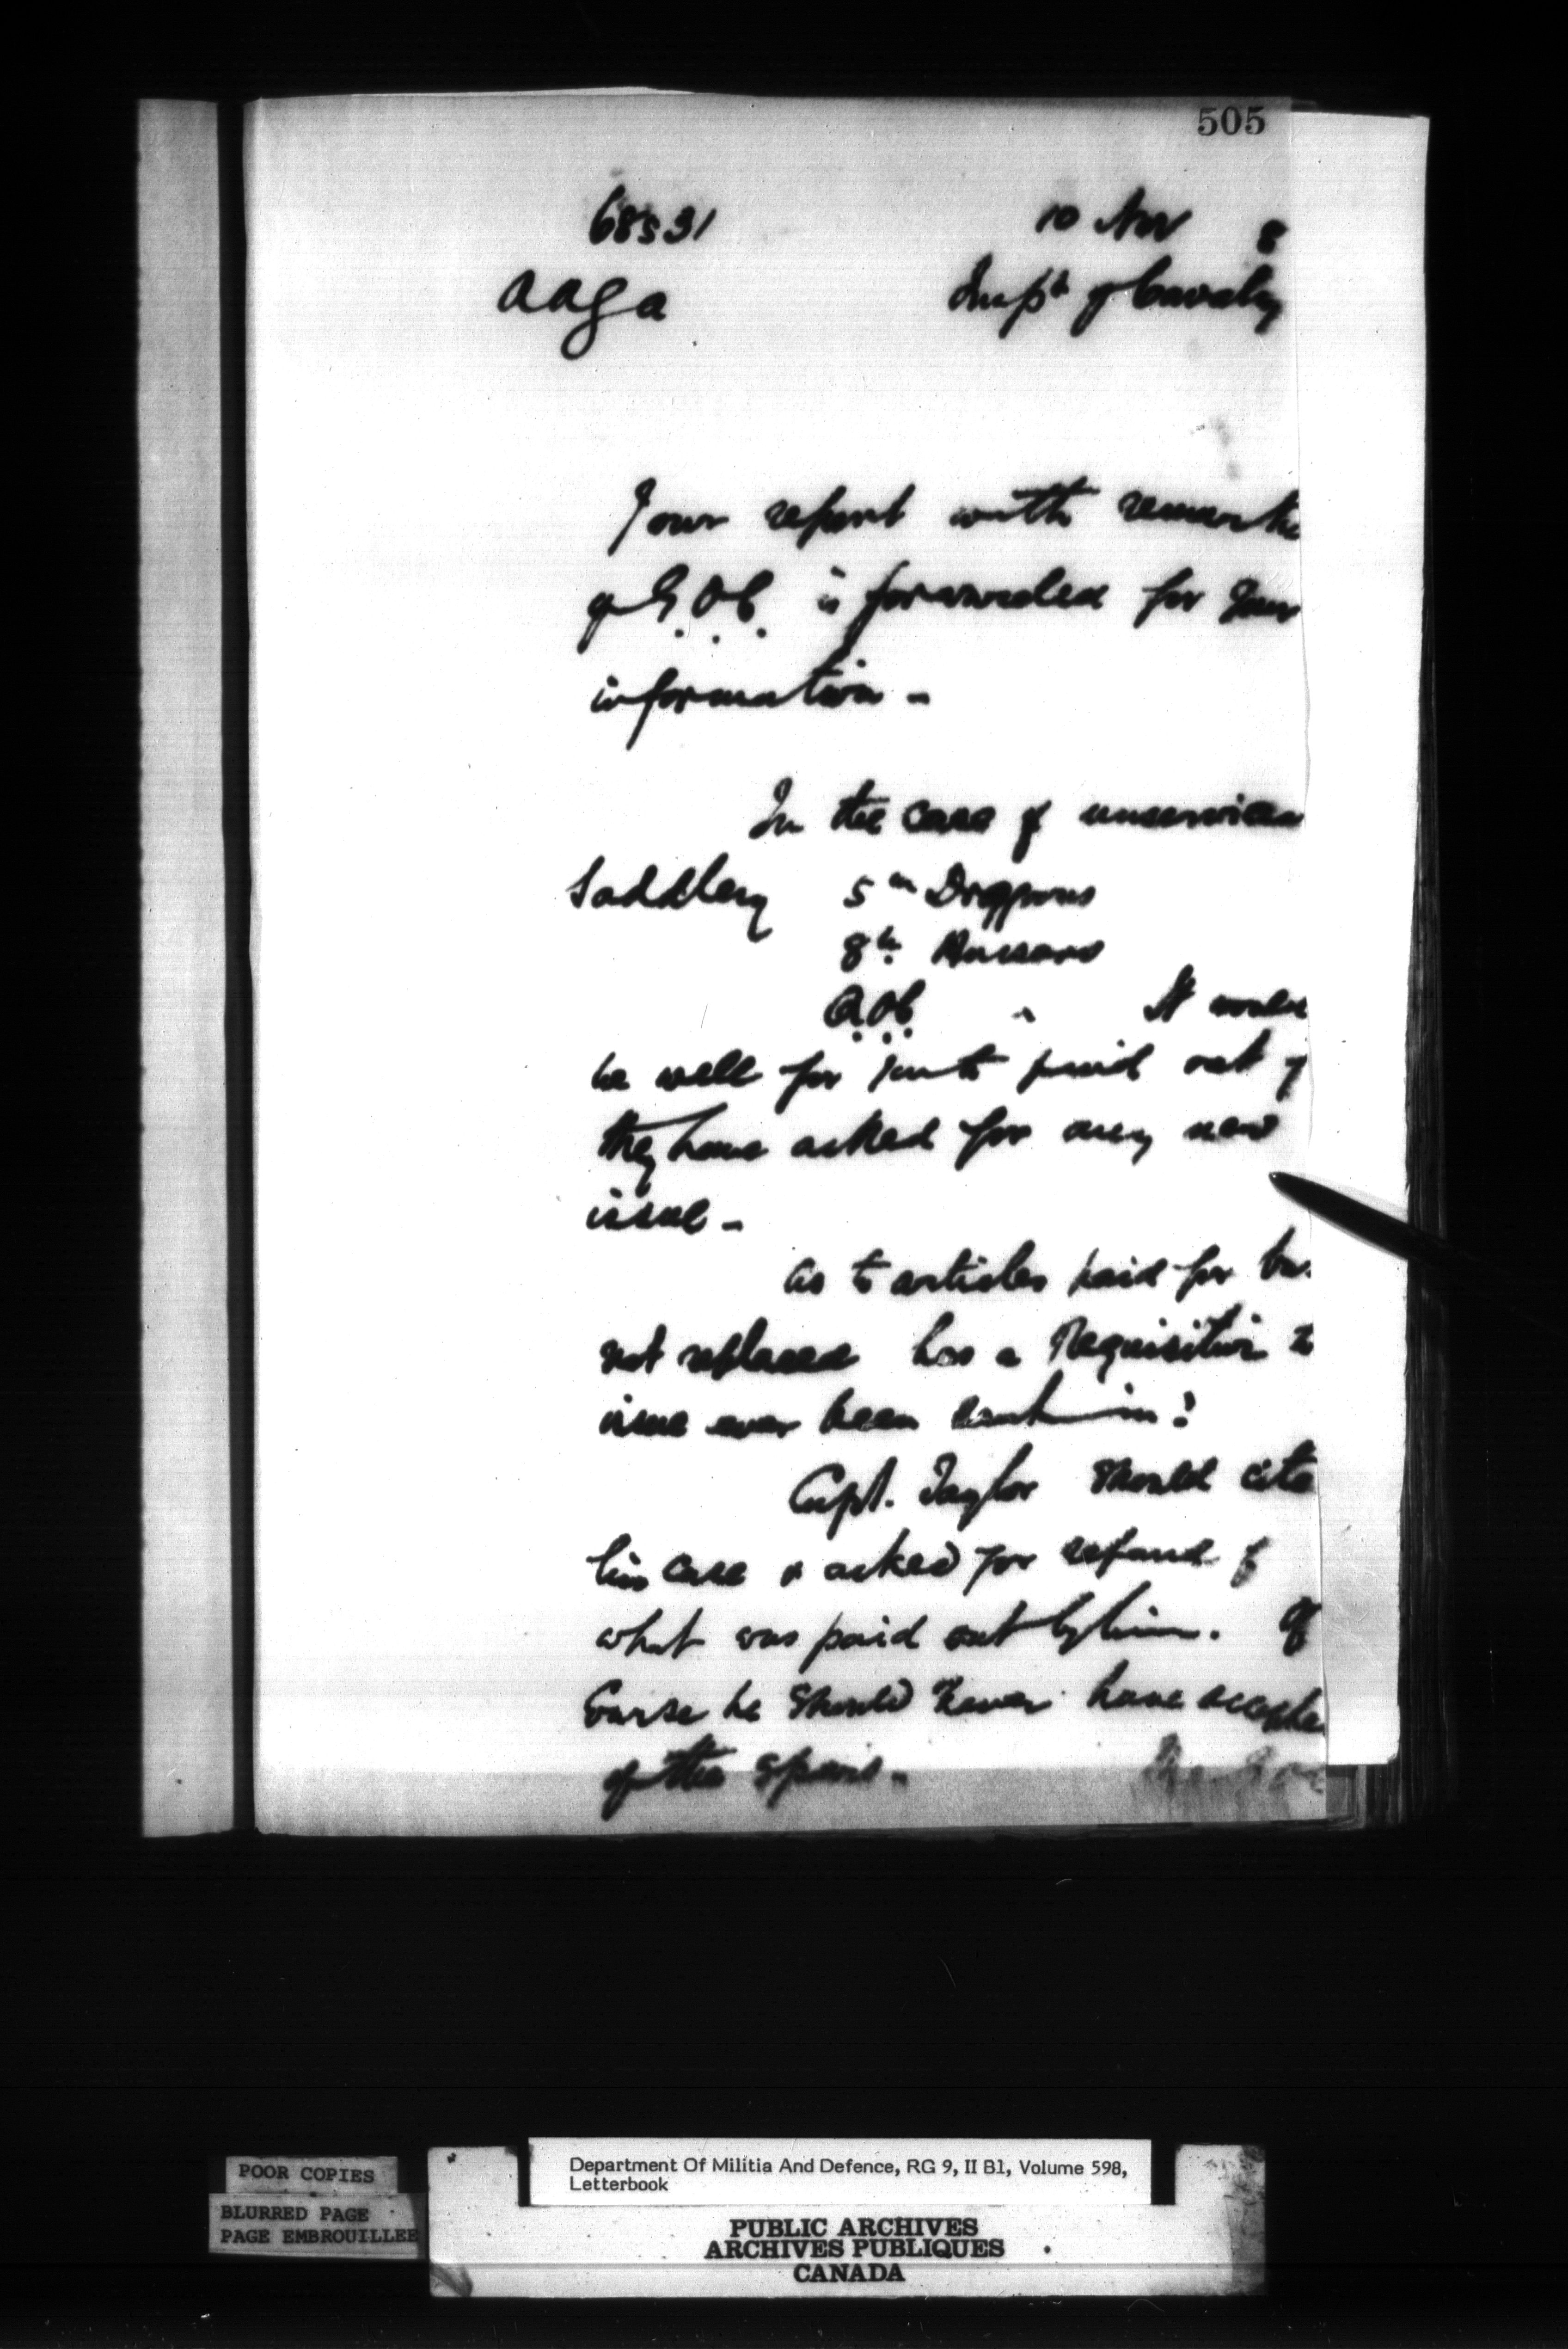 505
68531 10 Nov 8
AAGA Insp^r of Cavalry
Your report with remarks
of G.O.C. is forwarded for your
information -
In the case of unservicea
Saddlery 5^th Dragoons
8^th Hussars
Q.O.C. " It would
be well for paid out
they have asked for any new
issue -
As to articles paid for bu
not replaced has a Requisition to
issue ever been sent in?
Capt. Taylor should cite
his case & asked for refund of
what was paid out by him. Of
Course he should never have accepte
of the Spurs -
POOR COPIES
BLURRED PAGE
PAGE EMBROUILLEE
Department Of Militia And Defence, RG 9, II B1, Volume 598,
Letterbook
PUBLIC ARCHIVES
ARCHIVES PUBLIQUES
CANADA